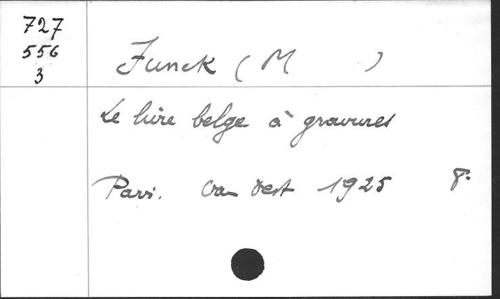 727
556
3
Funck (M )
Le livre belge à gravures
Paris. Van Oest 1925 8°